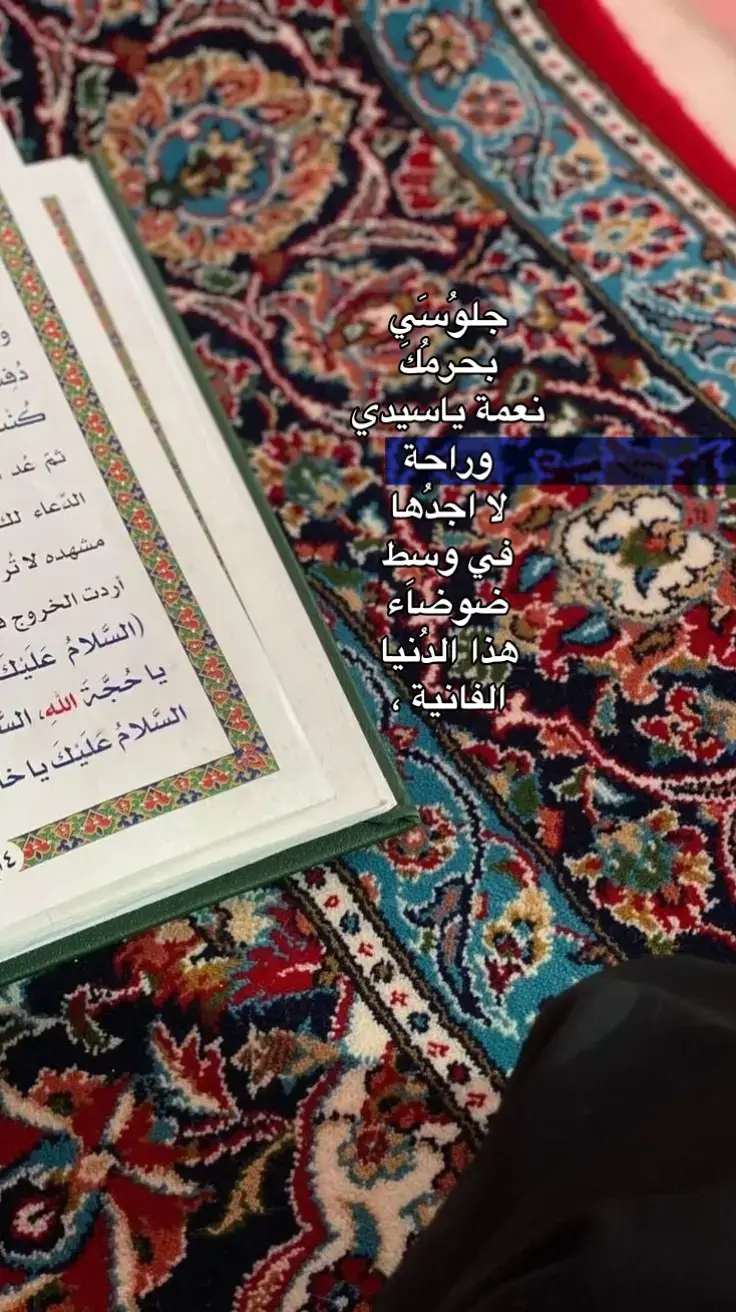 جلوُسَي
بحرمُكَ
نعمة ياسيدي
وراحة
لا اجدُها
في وسط
ضوضاَء
هذا الدُنيا
الفانية ،
ثمّ عُد
الدّعاء
مشهده لا
أردت الخروج
(السَّلامُ عَلَيْكَ
يا حُجَّةَ اللهِ،
السَّلامُ عَلَيْكَ يا